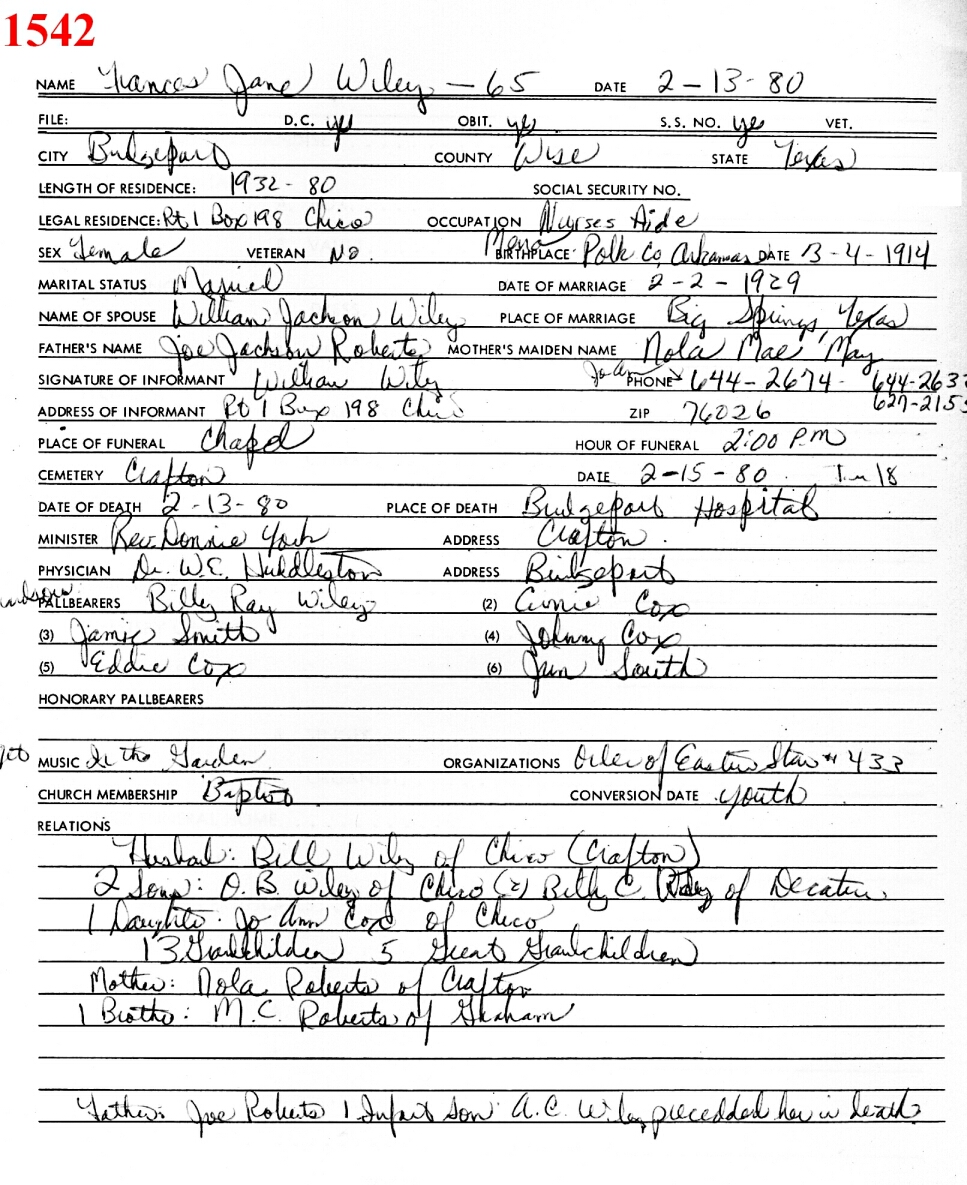 1542
NAME Frances Jane Wiley - 65 DATE 2-13-80
FILE: D.C. yes OBIT. yes S.S. NO. yes VET.
CITY Bridgeport COUNTY Wise STATE Texas
LENGTH OF RESIDENCE: 1932-80 SOCIAL SECURITY NO.
LEGAL RESIDENCE: Rt 1 Box 198 Chico OCCUPATION Nurses Aide
SEX Female VETERAN No. Mena BIRTHPLACE Polk Co, Arkansas DATE 3-4-1914
MARITAL STATUS Married DATE OF MARRIAGE 2-2-1929
NAME OF SPOUSE William Jackson Wiley PLACE OF MARRIAGE Big Springs, Texas
FATHER'S NAME Joe Jackson Roberts MOTHER'S MAIDEN NAME Nola Mae May
SIGNATURE OF INFORMANT William Wiley Jo Ann PHONE 644-2674- 644-263
ADDRESS OF INFORMANT Rt 1 Box 198 Chico ZIP 76026 627-215
PLACE OF FUNERAL Chapel HOUR OF FUNERAL 2:00 P.M
CEMETERY Crafton DATE 2-15-80 18
DATE OF DEATH 2-13-80 PLACE OF DEATH Bridgeport Hospital
MINISTER Rev. Donnie York ADDRESS Crafton.
PHYSICIAN Dr. W.E. Huddleston ADDRESS Bridgeport
PALLBEARERS Billy Ray Wiley (2) Cox
(3) Jamie Smith (4) Johnny Cox
(5) Eddie Cox (6) Jim South
HONORARY PALLBEARERS
MUSIC In the Garden ORGANIZATIONS Order of Eastern Star #433
CHURCH MEMBERSHIP Baptist CONVERSION DATE youth
RELATIONS
Husband: Bill Wiley of Chico (Crafton)
2 Sons: O.B. Wiley of Chico (2) Billy C. Wiley of Decatur
1 Daughter: Jo Ann Cox of Chico
13 Grandchildren 5 Great Grandchildren
Mother: Nola Roberts of Crafton
1 Brother: M.C. Roberts of Graham
Father: Joe Roberts 1 Infant son A.C. Wiley precedded her in death